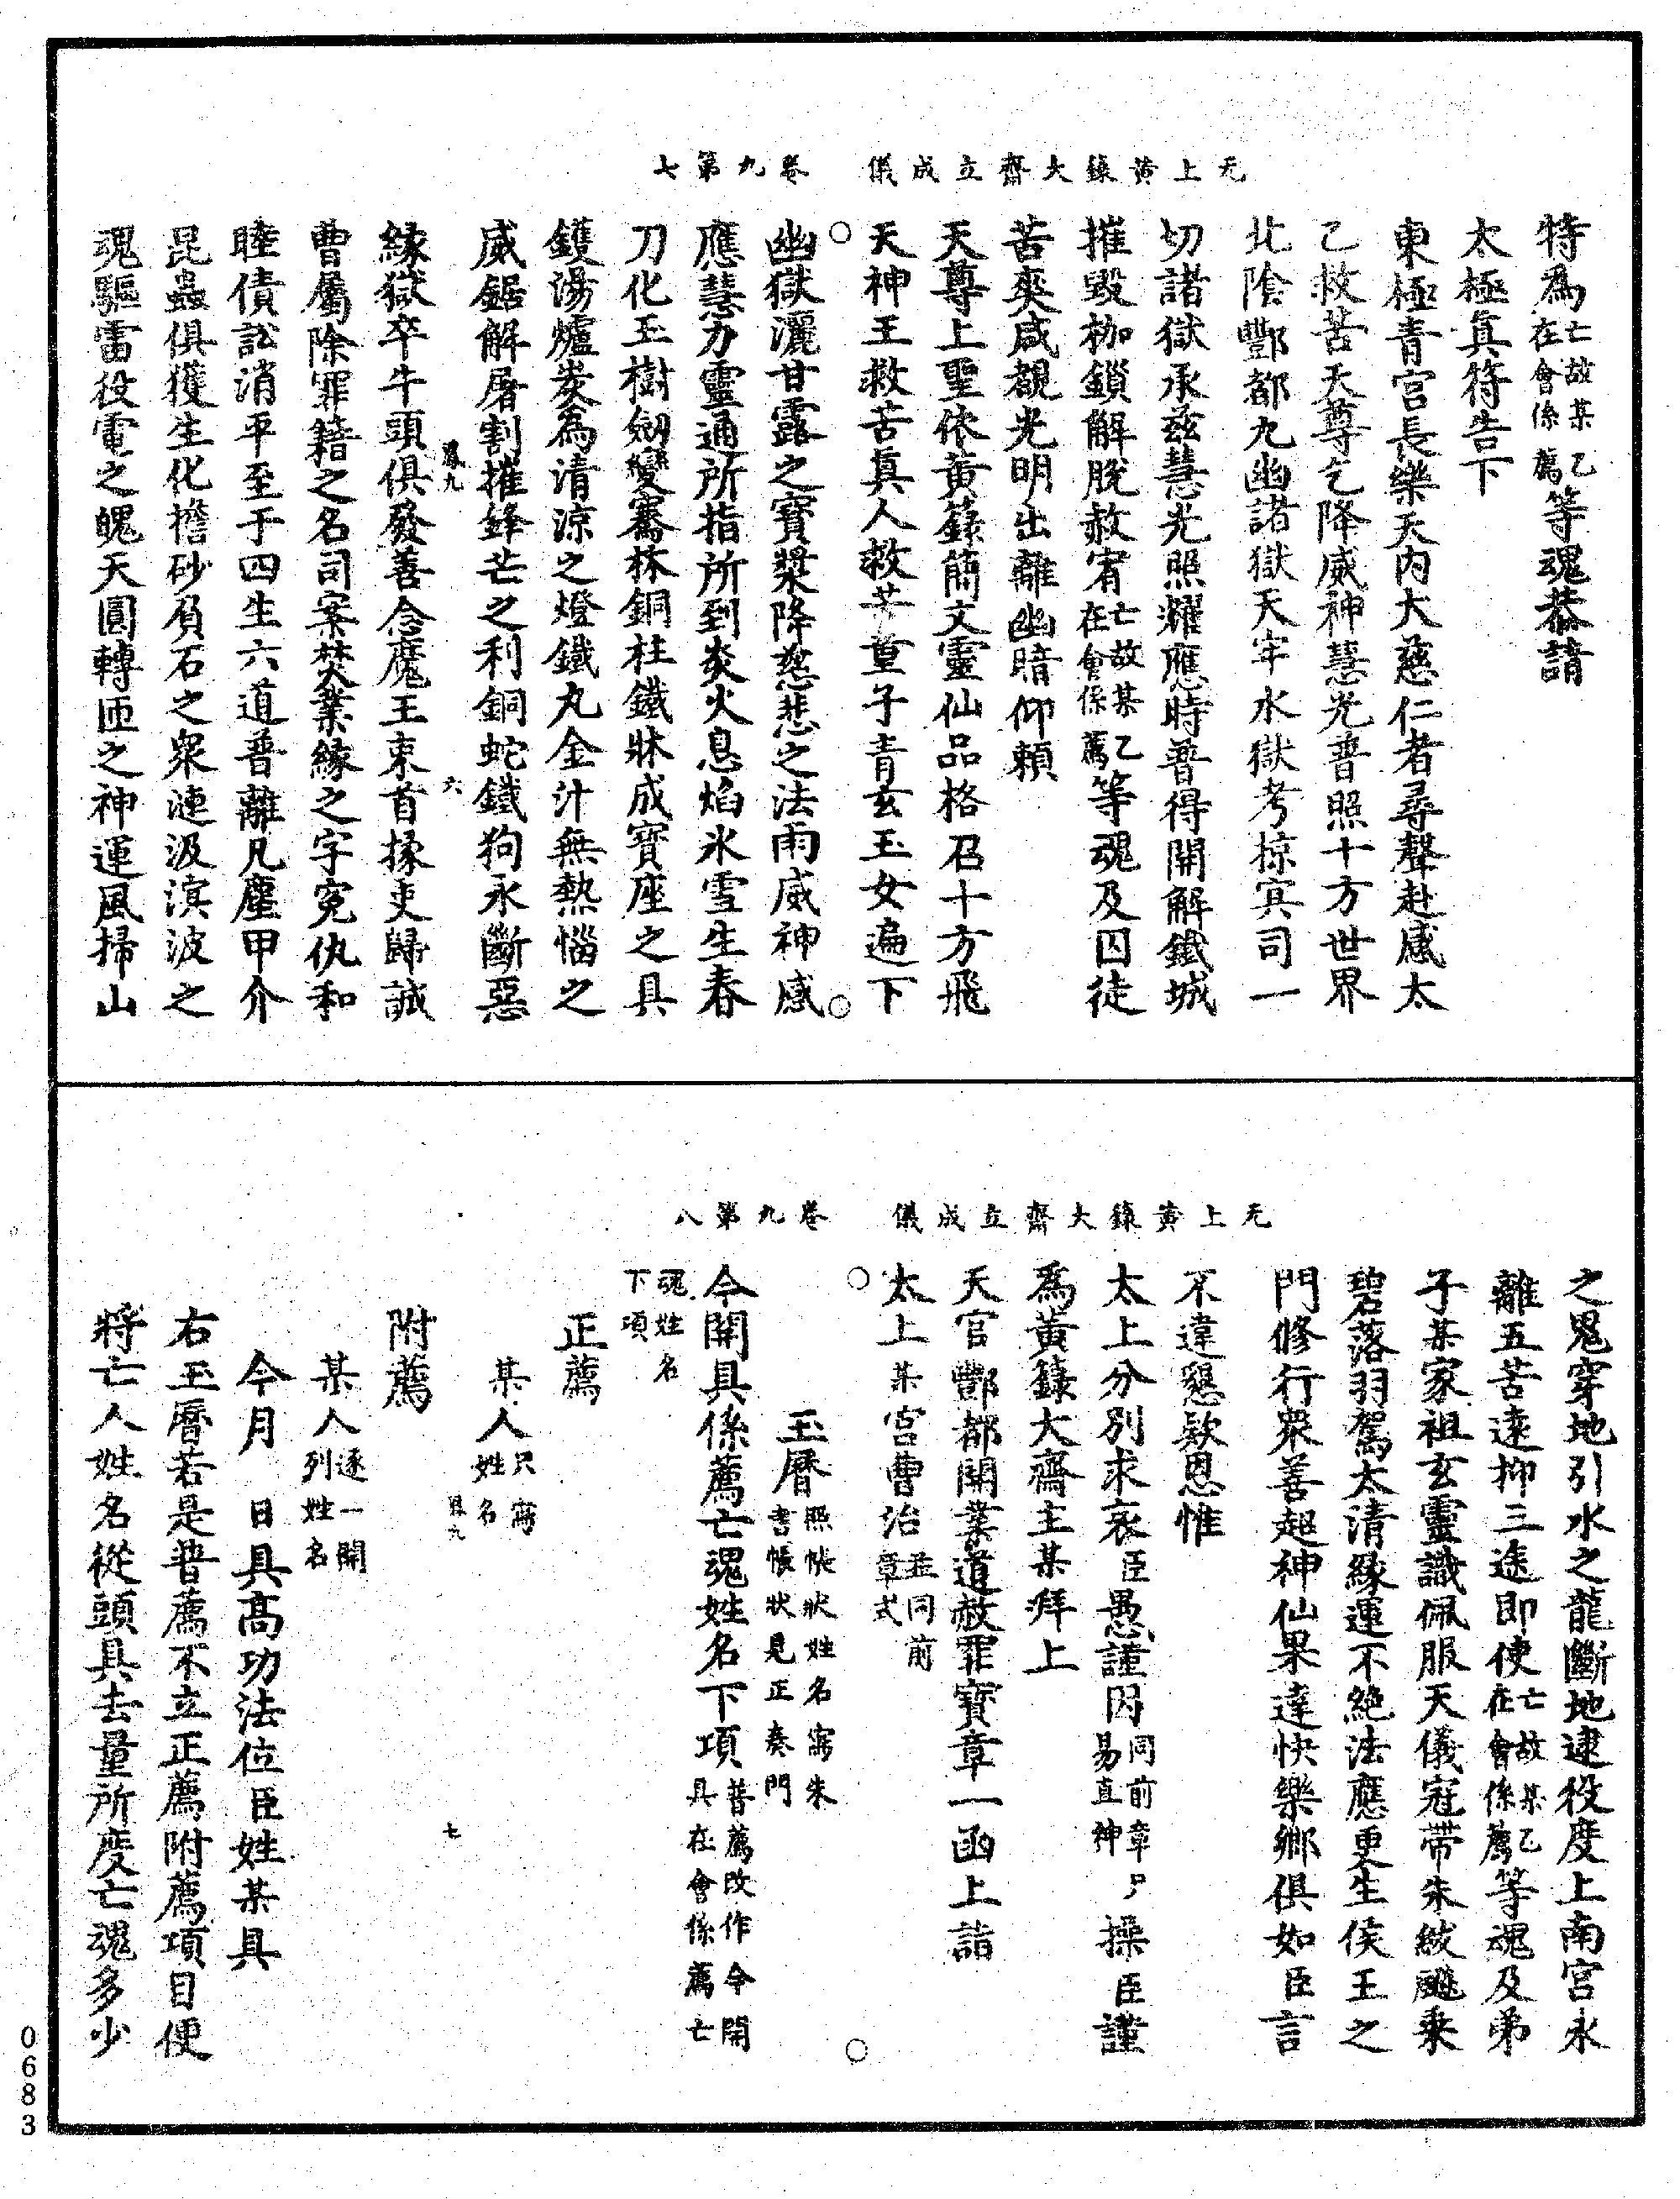 无上黃籙大齋立成儀　卷九第七
特為亡故某乙在會係薦等魂恭請
太極真符告下
東極青宮長樂天內大慈仁者尋聲赴感太
乙救苦天尊乞降威神慧光普照十方世界
北陰酆都九幽諸獄天牢水獄考掠冥司一
切諸獄承茲慧光照耀應時普得開解鐵城
摧毀枷鎖解脫赦宥亡故某乙在會係薦等魂及囚徒
苦爽咸覩光明出離幽暗仰賴
天尊上聖依黃籙簡文靈仙品格召十方飛
天神王救苦真人救苦童子青玄玉女遍下
幽獄灑甘露之寶漿降慈悲之法雨威神感
應慧力靈通所指所到炎火息焰氷雪生春
刀化玉樹劒變騫林銅柱鐵牀成寶座之具
鑊湯爐炭為清涼之燈鐵丸金汁無熱惱之
威鋸解屠割摧鋒芒之利銅蛇鐵狗永斷惡
六
緣獄卒牛頭俱發善念魔王束首掾吏歸誠
曹屬除罪籍之名司案焚業緣之字寃仇和
睦債訟消平至于四生六道普離凡塵甲介
昆蟲俱獲生化擔砂負石之衆漣汲溟波之
魂驅雷役電之魄天圓轉匝之神運風掃山
无上黃籙大齋立成儀　卷九第八
之鬼穿地引水之龍斷地逮役度上南宮永
離五苦遠抑三途即使亡故某乙在會係薦等魂及弟
子某家祖玄靈識佩服天儀冠帶朱紱飈乗
碧落羽駕太清緣運不絕法應更生侯王之
門修行衆善超神仙果達快樂鄉俱如臣言
不違懇欵恩惟
太上分別求哀臣愚謹因同前章尸易直神操臣謹
為黃籙大齋主某拜上
天官酆都開業道赦罪寶章一函上詣
太上某宮曹治並同前章式
玉曆照帳狀姓名寫朱書帳狀見正奏門
今開具係薦亡魂姓名下項普薦改作今開具在會係薦亡
魂姓名下項
正薦
某人只寫姓名
七
附薦
某人逐一開列姓名
今月　日具高功法位臣姓某具
右玉曆若是普薦不立正薦附薦項目便
將亡人姓名從頭具去量所度亡魂多少
0683